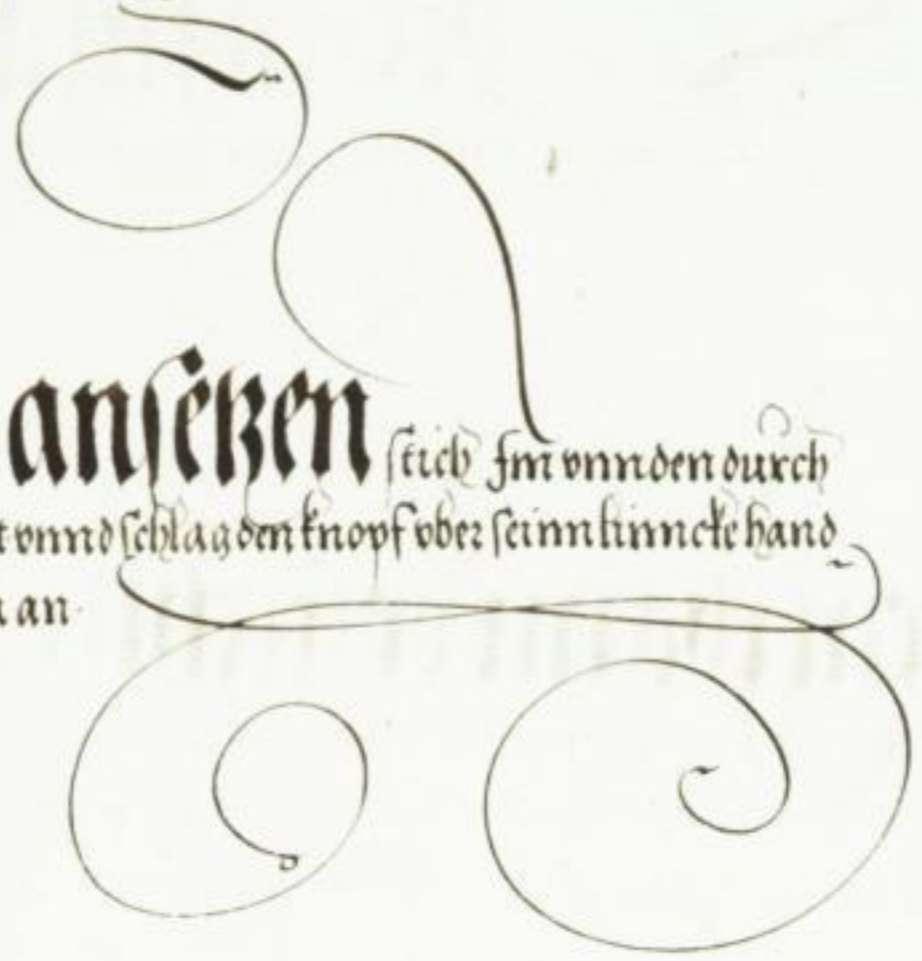 ansetzen stich Im vnnden durch
t vnnd schlag den knopf vber seinn linncke hand
an